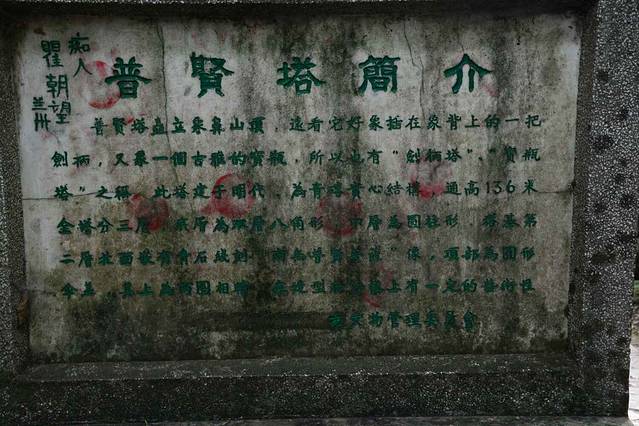 普賢塔簡介
普賢塔矗立象鼻山頂，遠看它好象插在象背上的一把
劍柄，又象一個古雅的寶瓶，所以也有"劍柄塔"、"寶瓶
塔"之稱。此塔建于明代，為青塔實心結構，通高13.6米
全塔分三層 層為雙層八角形 層為圓柱形 塔基第
二層北面嵌有青石線刻"南無普賢菩薩"像，頂部為圓形
傘蓋，其上為 圓相輪， 造型 上有一定的藝術性
文物管理委員會
痴人
瞿朝望
兰州